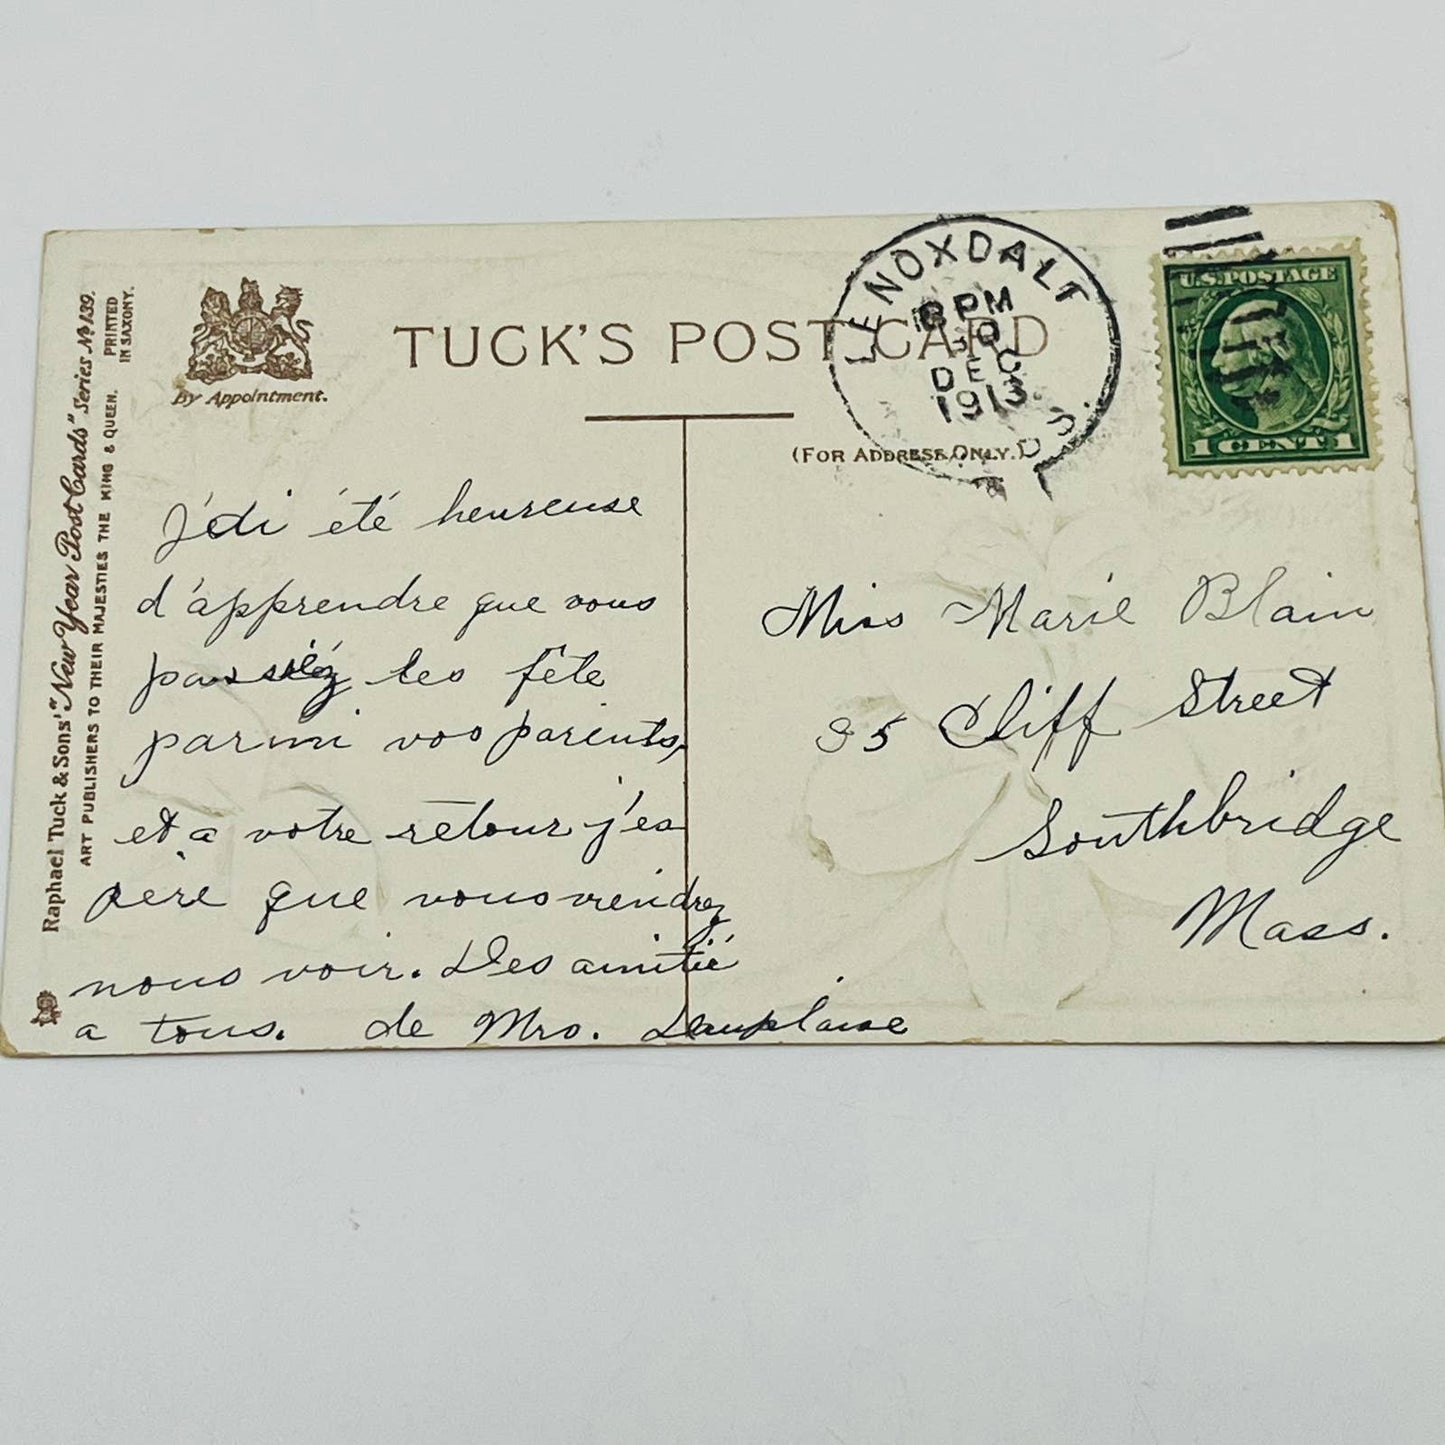 Raphael Tuck & Sons' "New Year Post Cards" Series No 139.
ART PUBLISHERS TO THEIR MAJESTIES THE KING & QUEEN.
PRINTED
IN SAXONY.
By Appointment.
TUCK'S POST CARD
(FOR ADDRESS ONLY.)
LENOXDALE
PM
30
DEC
1913
U.S. POSTAGE
1 CENT 1
J'di été heureuse
d'apprendre que vous
passiéz les fête
parmi vos parients,
et a votre retour j'es
père que vous viendrez
nous voir. Des amitié
a tous. de Mrs.
Miss Marie Blain
35 Cliff Street
Southbridge
Mass.